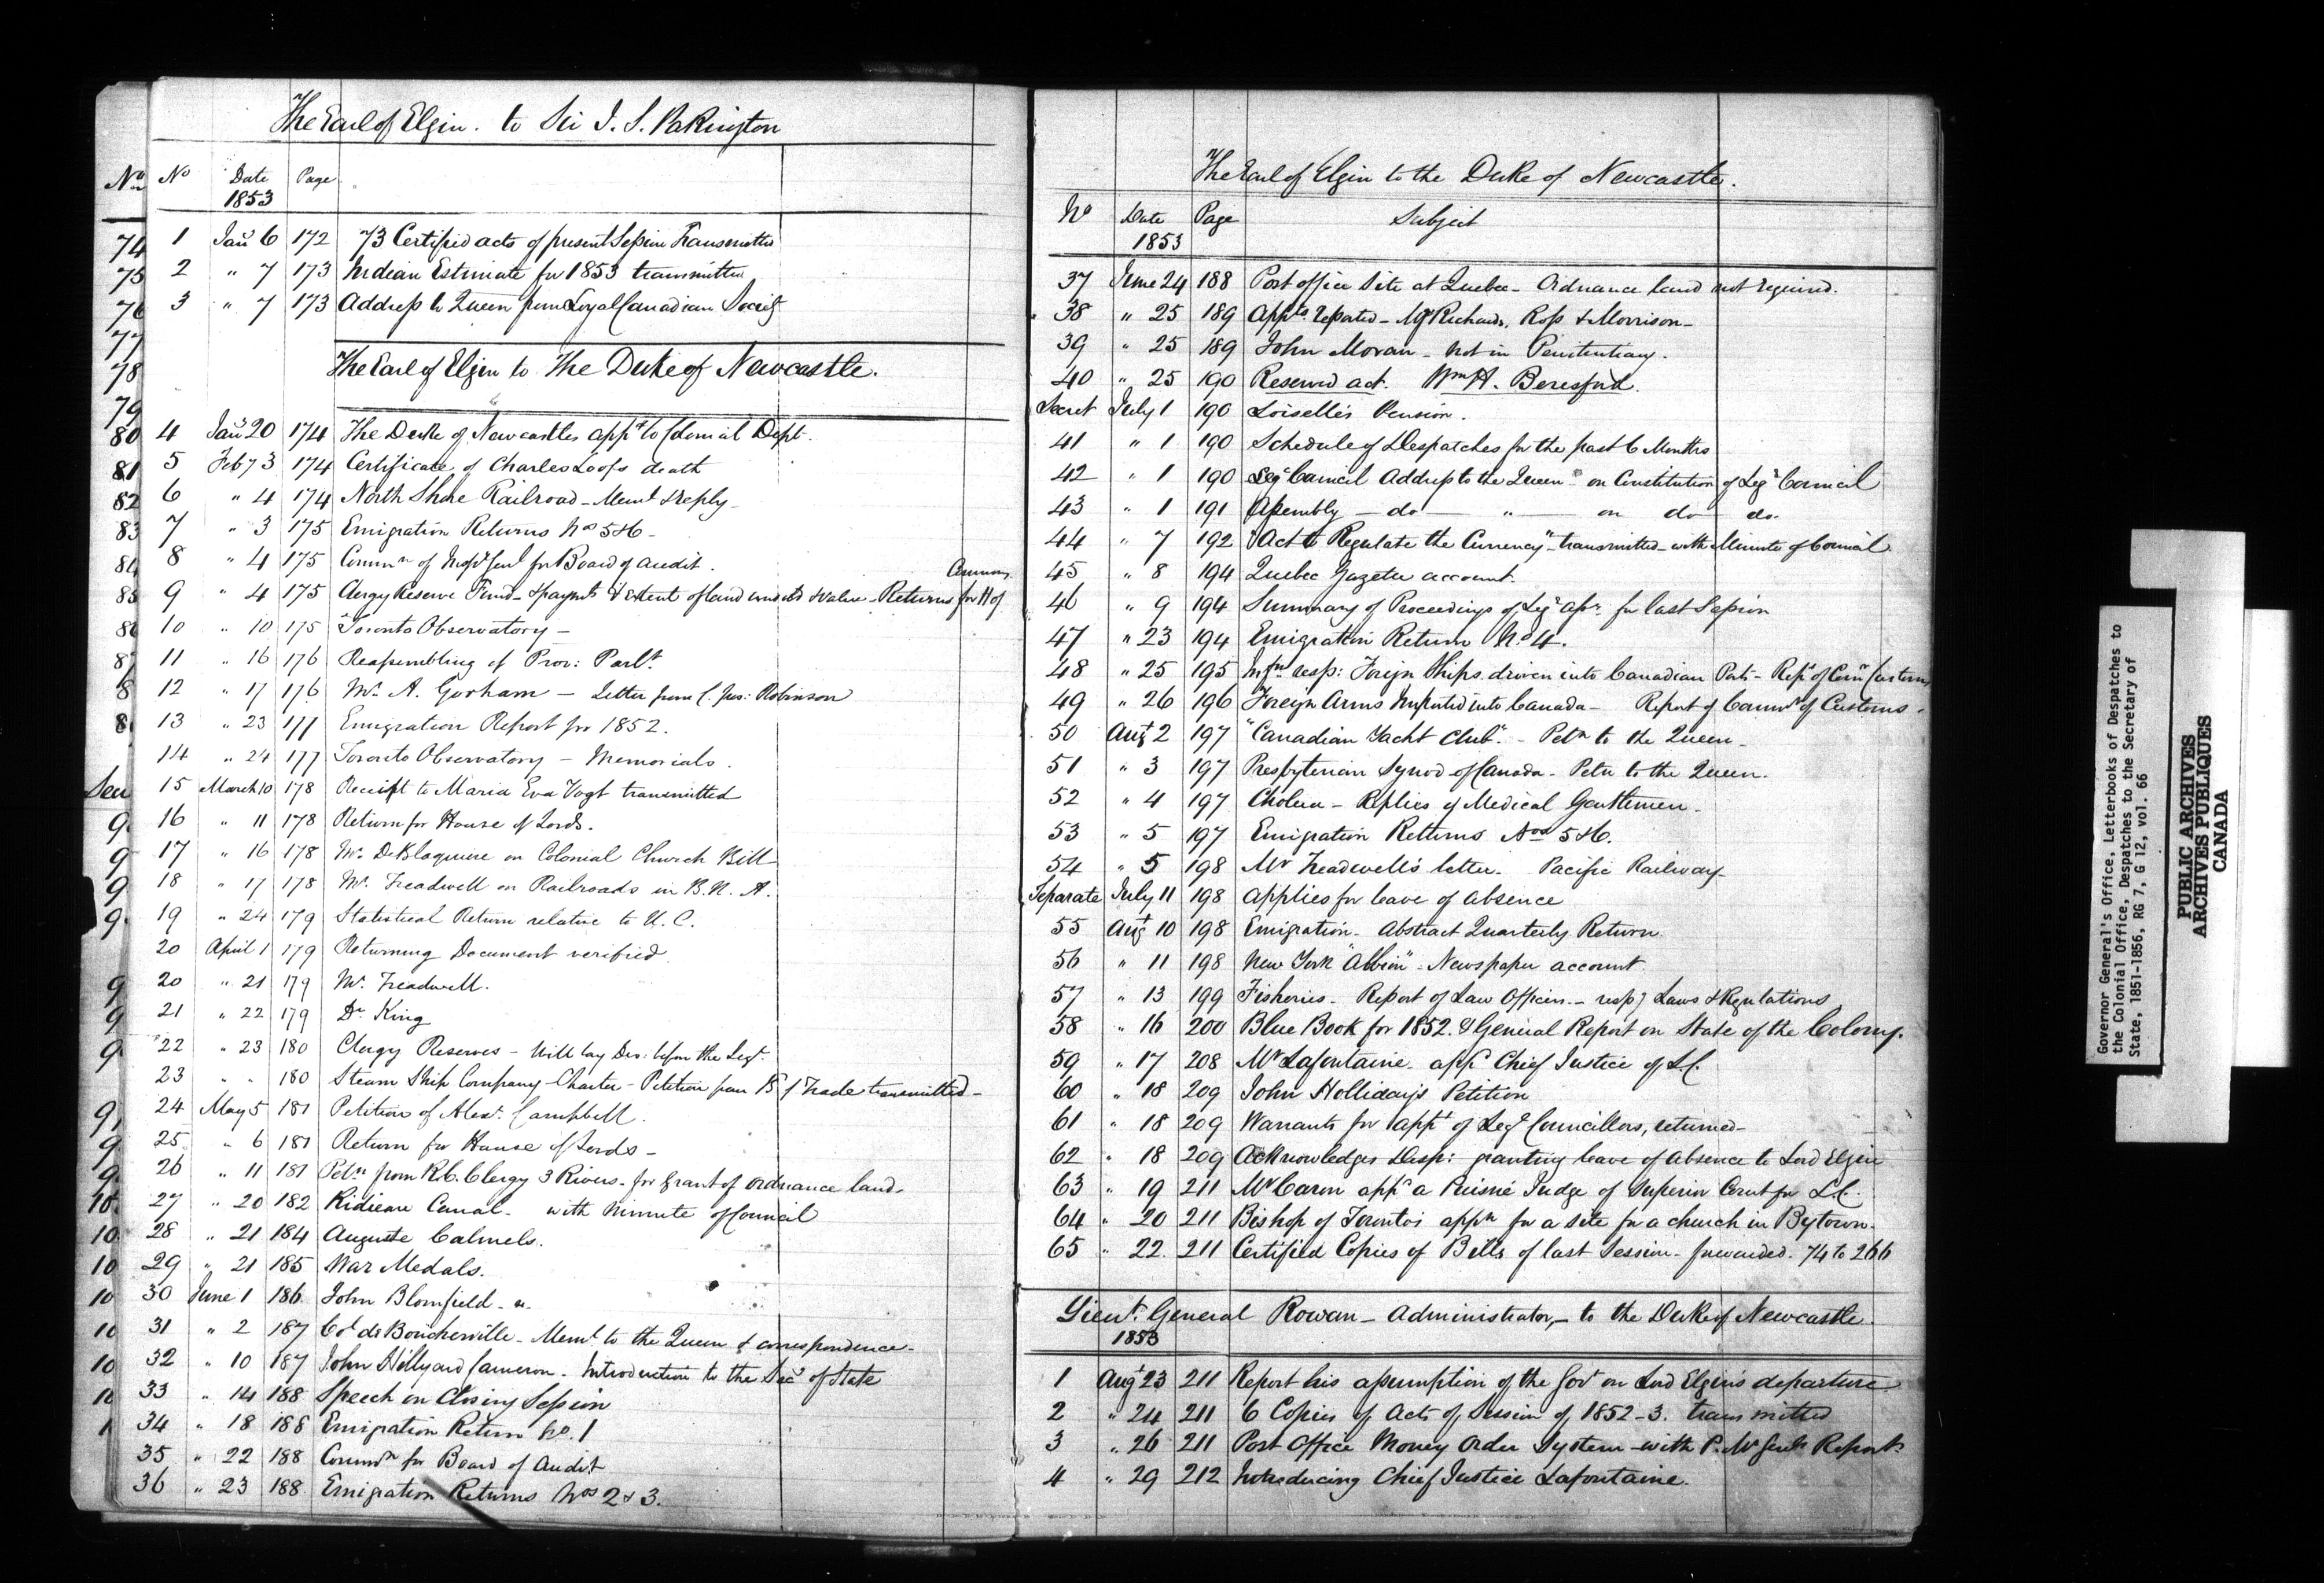 The Earl of Elgin. to Sir J. S. Pakington
No No Date Page
1853
74 1 Jany 6 172 73 Certified acts of present Session Transmitted
75 2 " 7 173 Indian Estimate for 1853 transmitted
76 3 " 7 173 Address to Queen from Loyal Canadian Society
77
The Earl of Elgin to The Duke of Newcastle.
78
79
80 4 Jany 20 174 The Duke of Newcastles appt to Colonial Dept.
81 5 Feby 3 174 Certificate of Charles Loofs death
82 6 " 4 174 North Shore Railroad - Meml & reply -
83 7 " 3 175 Emigration Returns Nos 5 & 6 -
84 8 " 4 175 Commn of Inspr Genl for Board of Audit.
85 9 " 4 175 Clergy Reserve Fund - & payts & Extent of land & value - Returns for H of Commons
10 " 10 175 Toronto Observatory -
11 " 16 176 Reassembling of Prov: Parlt.
12 " 17 176 Mr. A. Gorham - Letter from C. Jus: Robinson
13 " 23 177 Emigration Report for 1852.
14 " 24 177 Toronto Observatory - Memorials.
15 March 10 178 Receipt to Maria Eva Vogt transmitted
16 " 11 178 Return for House of Lords.
17 " 16 178 Mr. DeBlaquiere on Colonial Church Bill
18 " 17 178 Mr. Treadwell on Railroads in B. N. A.
19 " 24 179 Statistical Return relative to U. C.
20 April 1 179 Returning Document verified.
20 " 21 179 Mr. Treadwell.
21 " 22 179 Dr King
22 " 23 180 Clergy Reserves - Will lay Des: before the Legt.
23 " " 180 Steam Ship Company Charter - Petition from Bd of Trade transmitted -
24 May 5 181 Petition of Alexr. Campbell.
25 " 6 181 Return for House of Lords -
26 " 11 181 Petn from R. C. Clergy 3 Rivers - for grant of ordnance land.
27 " 20 182 Rideau Canal - with Minute of Council
28 " 21 184 Auguste Calmels.
29 " 21 185 War Medals.
30 June 1 186 John Blomfield -
31 " 2 187 Col de Boucherville - Meml to the Queen & correspondence -
32 " 10 187 John Hillyard Cameron - Introduction to the Secy of State
33 " 14 188 Speech on Closing Session
34 " 18 188 Emigration Return No. 1
35 " 22 188 Commn for Board of Audit
36 " 23 188 Emigration Returns Nos 2 & 3.
The Earl of Elgin to the Duke of Newcastle.
No Date Page Subject
1853
37 June 24 188 Post office Site at Quebec - Ordnance land not required.
38 " 25 189 Appts reported - Mr Richards, Ross & Morrison -
39 " 25 189 John Moran - not in Penitentiary.
40 " 25 190 Reserved act. Wm H. Beresford.
Secret July 1 190 Loiselle's Pension.
41 " 1 190 Schedule of Despatches for the past 6 Months
42 " 1 190 Leg Council Address to the Queen - on Constitution of Legs Council
43 " 1 191 Assembly - do - " - on do do.
44 " 7 192 "Act to Regulate the Currency" - transmitted - with Minute of Council
45 " 8 194 Quebec Gazette account.
46 " 9 194 Summary of Proceedings of Legs assy. for last Session
47 " 23 194 Emigration Return No 4.
48 " 25 195 Infn resp: Foreign Ships driven into Canadian Ports - Rept of Comr Customs
49 " 26 196 Foreign Arms Imported into Canada - Report of Commr of Customs -
50 Augt 2 197 "Canadian Yacht Club" - Petn to the Queen -
51 " 3 197 Presbyterian Synod of Canada - Petn to the Queen.
52 " 4 197 Cholera - Replies of Medical Gentlemen -
53 " 5 197 Emigration Returns Nos 5 & 6.
54 " 5 198 Mr Treadwell's letter - Pacific Railway -
Separate July 11 198 Applies for leave of absence
55 Augt 10 198 Emigration - Abstract Quarterly Return
56 " 11 198 New York "Albion" - Newspaper account.
57 " 13 199 Fisheries - Report of Law Officers - respg Laws & Regulations
58 " 16 200 Blue Book for 1852 & General Report on State of the Colony.
59 " 17 208 Mr Lafontaine - appd Chief Justice of L. C.
60 " 18 209 John Holliday's Petition
61 " 18 209 Warrants for appt of Legs Councillors, returned -
62 " 18 209 Acknowledges Desp: granting leave of absence to Lord Elgin
63 " 19 211 Mr Caron appd a Puisné Judge of Superior Court for L. C.
64 " 20 211 Bishop of Toronto's appn for a site for a church in Bytown.
65 " 22 211 Certified Copies of Bills of last Session - forwarded. 74 to 266
Lieut. General Rowan - Administrator, - to the Duke of Newcastle.
1853
1 Augt 23 211 Report his assumption of the Govt on Lord Elgin's departure
2 " 24 211 6 Copies of Acts of Session of 1852-3. transmitted
3 " 26 211 Post Office Money Order System - with P. Mr Genls Report
4 " 29 212 Introducing Chief Justice Lafontaine.
Governor General's Office. Letterbooks of Despatches to
the Colonial Office, Despatches to the Secretary of
State, 1851-1856, RG 7, G 12, vol. 66
PUBLIC ARCHIVES
ARCHIVES PUBLIQUES
CANADA